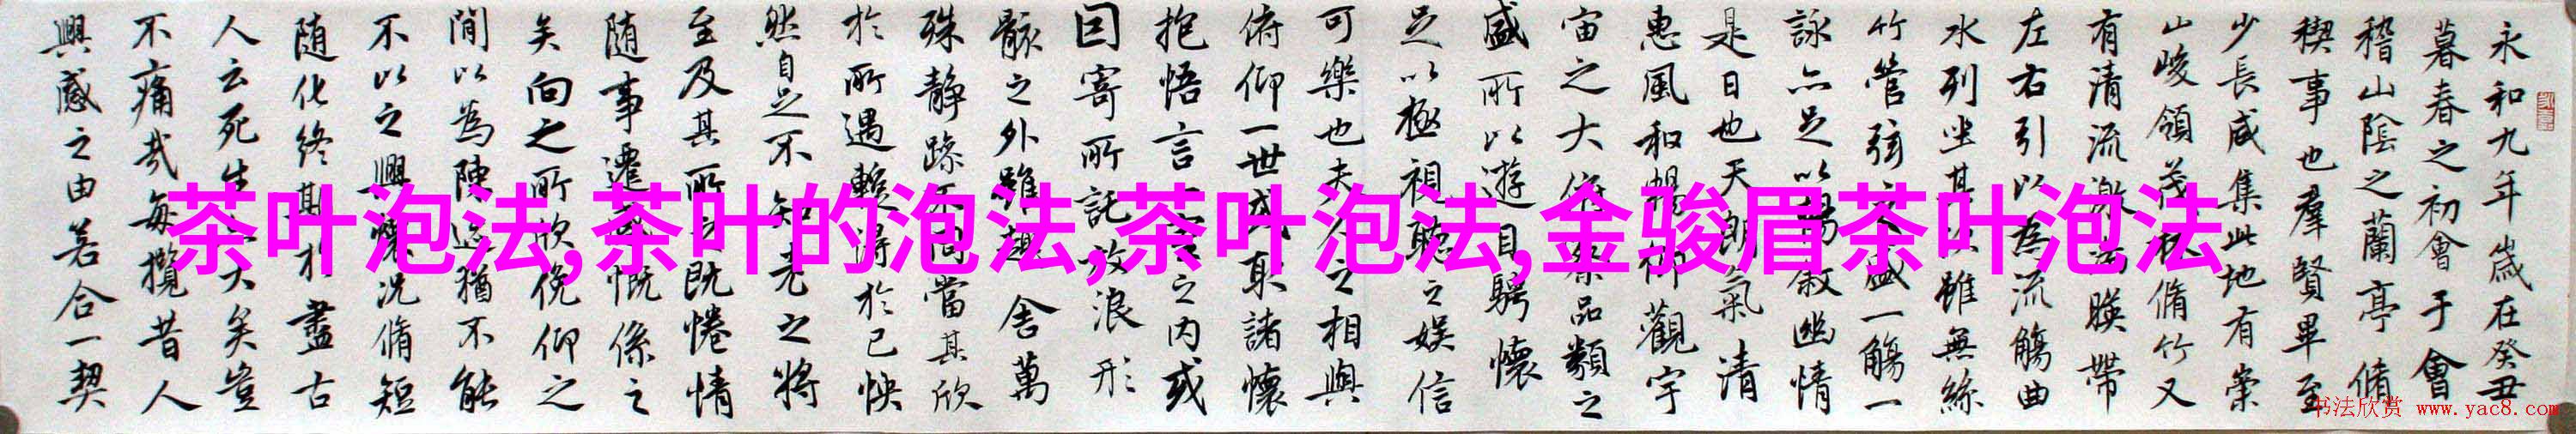 永和九年歲在癸丑
暮春之初會于會
稽山陰之蘭亭脩
稧事也羣賢畢至
少長咸集此地有崇
山峻領茂林脩竹又
有清流激湍暎帶
左右引以為流觴曲
水列坐其次雖無絲
竹管弦之盛一觴一
詠亦足以暢敘幽情
是日也天朗氣清
惠風和暢仰觀宇
宙之大俯察品類之
盛所以遊目騁懷
足以極視聽之娛信
可樂也夫人之相與
俯仰一世或取諸懷
抱悟言一室之内或
因寄所託放浪形
骸之外雖趣舍萬
殊靜躁不同當其欣
於所遇蹔得於己怏
然自足不知老之將
至及其所之既惓情
随事遷感慨係之
矣向之所欣俛仰之
間以為陳迹猶不能
不以之興懷況脩短
随化終期於盡古
人云死生亦大矣豈
不痛哉每攬昔人
興感之由若合一契
茶叶泡法,茶叶的泡法,茶叶泡法,金骏眉茶叶泡法
书法欣赏 www.yac8.com